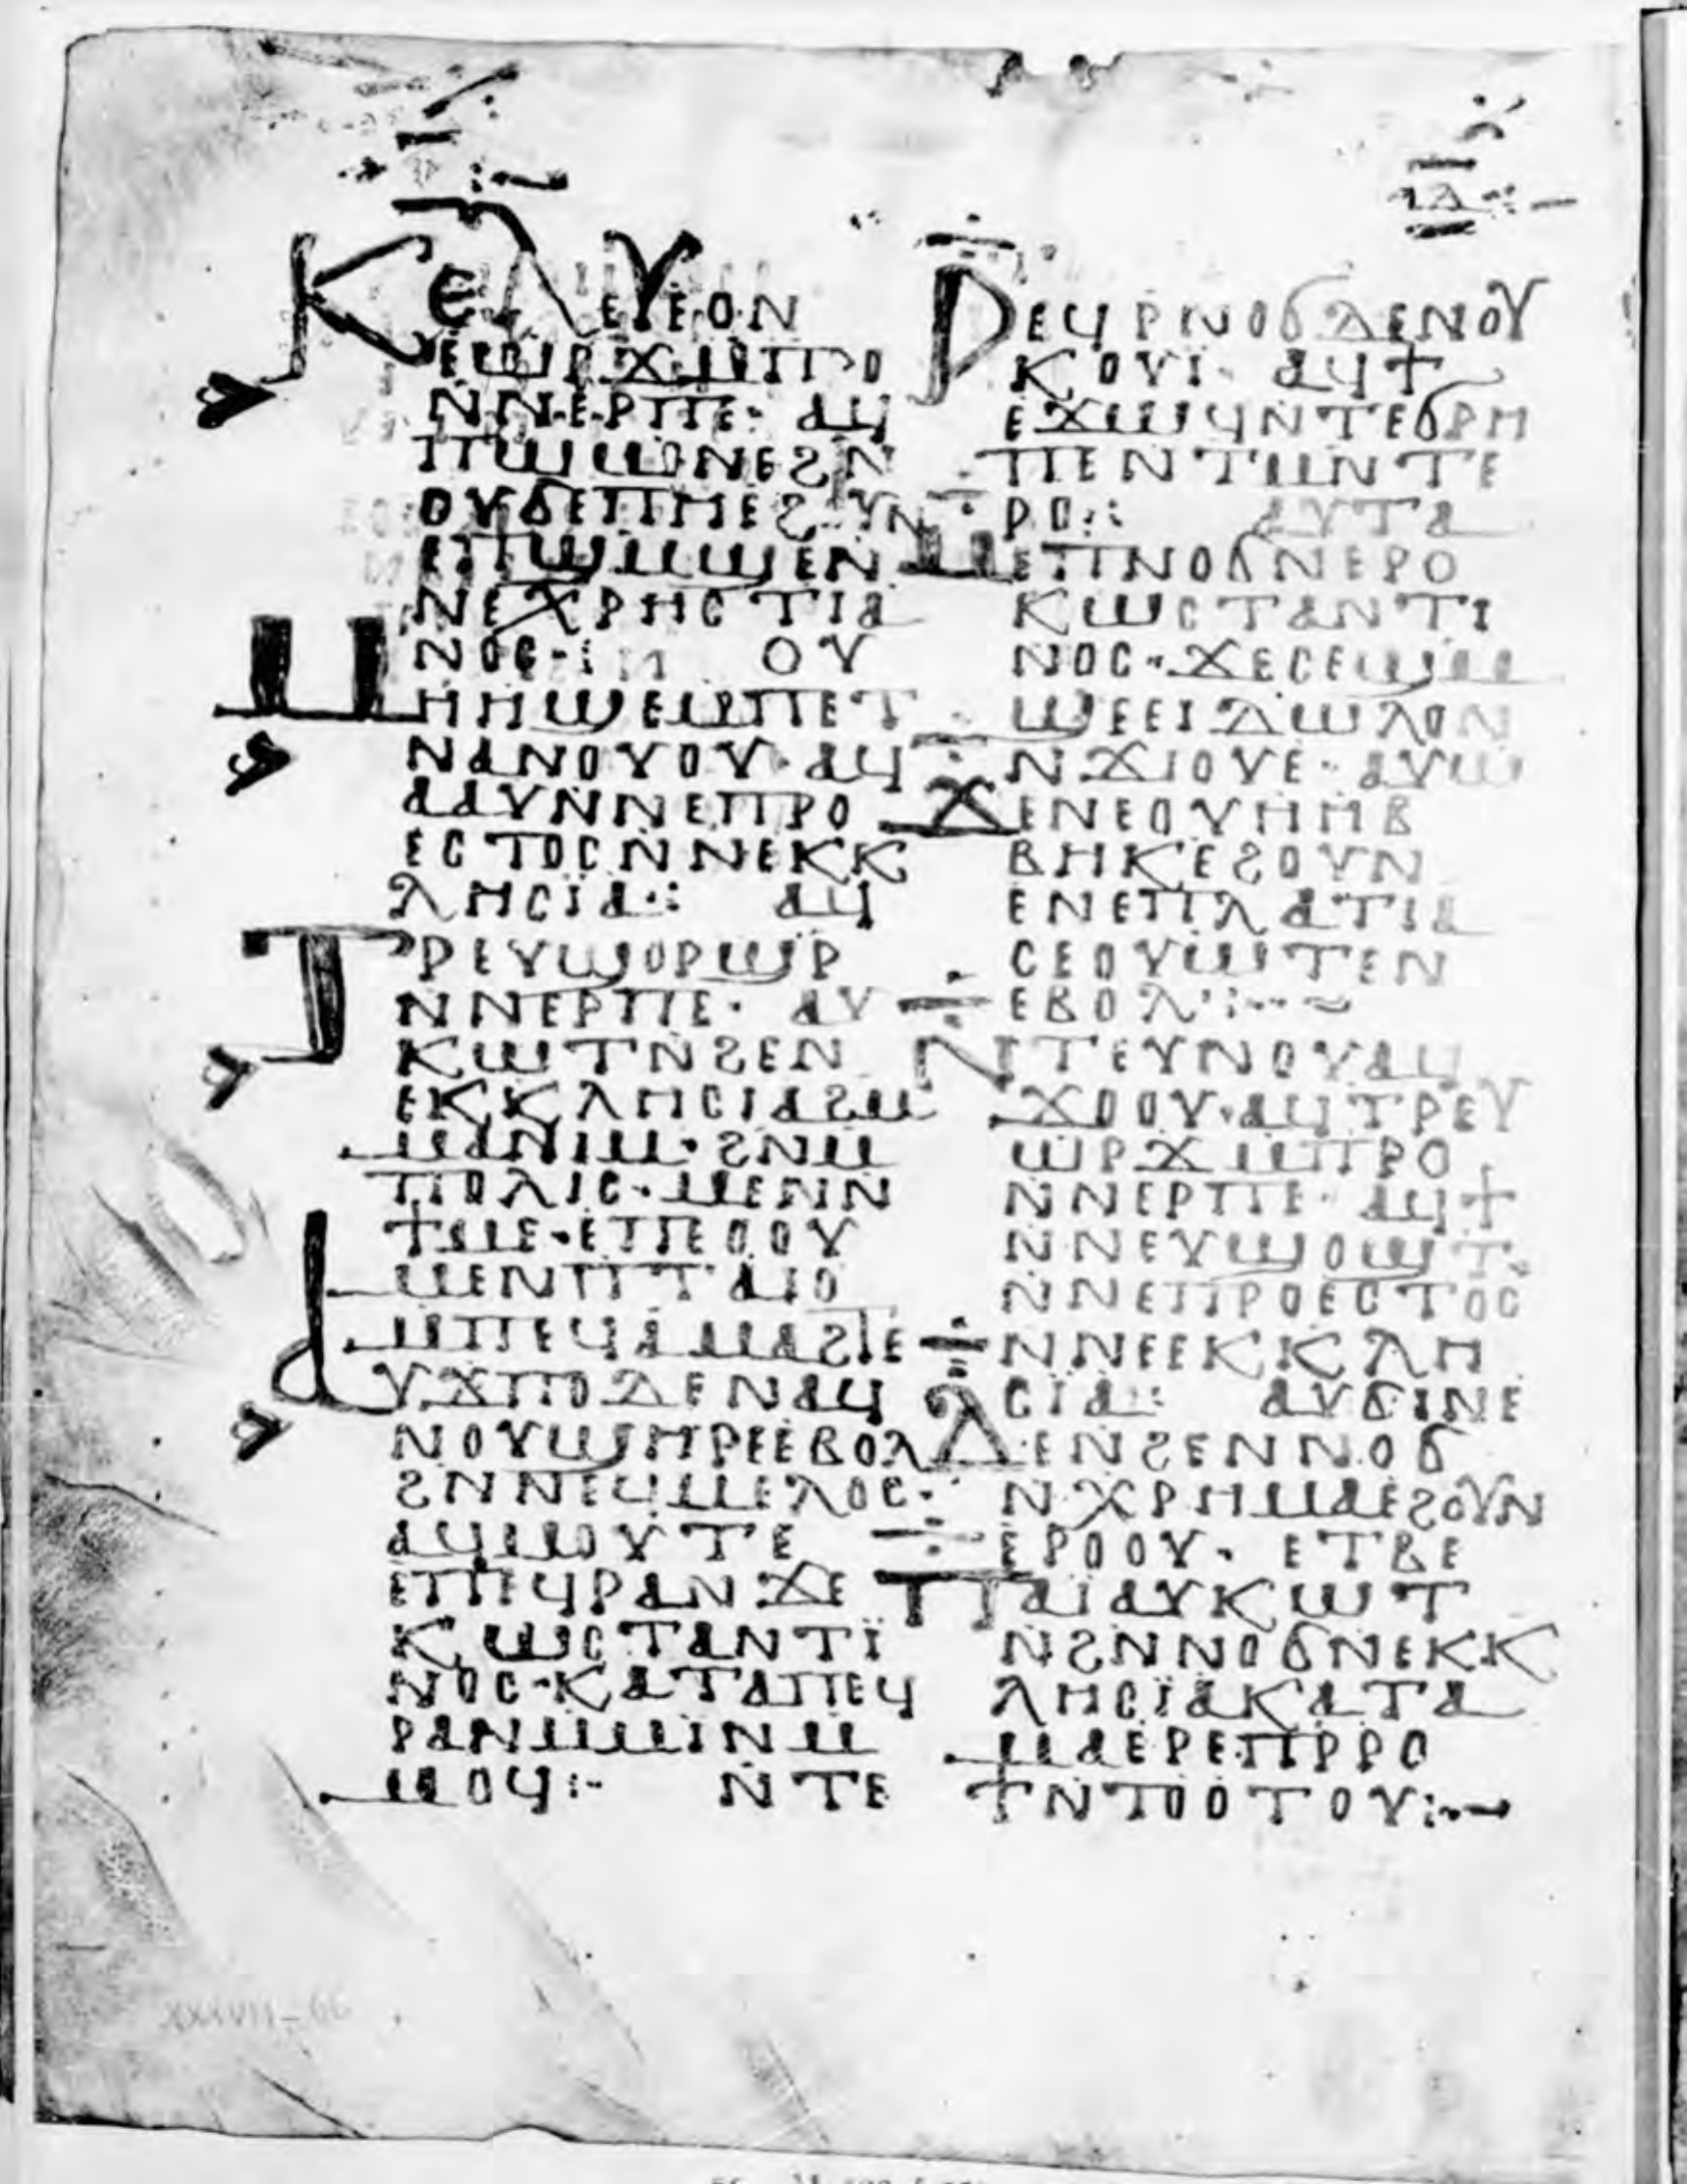 ⲓⲇ
ⲕⲉⲗⲉⲩⲉⲟⲛ
ⲉϣⲣϫⲙⲡⲣⲟ
ⲛⲛⲉⲣⲡⲉ· ⲁϥ
ⲡⲱⲱⲛⲉϩⲛ
ⲟⲩϭⲉⲡⲏⲉϩⲩⲛ
ⲉⲡϣⲙϣⲉⲛ
ⲛⲉⲭⲣⲏⲥⲧⲓⲁ
ⲛⲟⲥ⁝ ⲟⲩ
ⲙⲏⲏϣⲉⲙⲡⲉⲧ
ⲛⲁⲛⲟⲩⲟⲩ· ⲁϥ
ⲁⲁⲩⲛⲛⲉⲡⲣⲟ
ⲉⲥⲧⲟⲥⲛⲛⲉⲕⲕ
ⲗⲏⲥⲓⲁ⁝ ⲁϥ
ⲧⲣⲉⲩϣⲟⲣϣⲣ
ⲛⲛⲉⲣⲡⲉ· ⲁⲩ
ⲕⲱⲧⲛϩⲉⲛ
ⲉⲕⲕⲗⲏⲥⲓⲁϩⲙ
ⲙⲁⲛⲓⲙ· ϩⲛⲙ
ⲡⲟⲗⲓⲥ· ⲙⲉⲛⲛ
ϯⲙⲉ· ⲉⲡⲉⲟⲟⲩ
ⲙⲉⲛⲡⲧⲁⲓⲟ
ⲙⲡⲉϥⲁⲙⲁϩⲧⲉ
ⲁⲩϫⲡⲟⲇⲉⲛⲁϥ
ⲛⲟⲩϣⲏⲣⲉⲉⲃⲟⲗ
ϩⲛⲛⲉϥⲙⲉⲗⲟⲥ·
ⲁϥⲙⲟⲩⲧⲉ
ⲉⲡⲉϥⲣⲁⲛϫⲉ
ⲕⲱⲥⲧⲁⲛⲧⲓ
ⲛⲟⲥ· ⲕⲁⲧⲁⲡⲉϥ
ⲣⲁⲛⲙⲙⲓⲛⲙ
ⲙⲟϥ⁝ ⲛⲧⲉ
ⲣⲉϥⲣⲛⲟϭⲇⲉⲛⲟⲩ
ⲕⲟⲩⲓ· ⲁϥϯ
ⲉϫⲱϥⲛⲧⲉϭⲣⲏ
ⲡⲉⲛⲧⲙⲛⲧⲉ
ⲣⲟ⁝ ⲁⲩⲧⲁ
ⲙⲉⲡⲛⲟϭⲛⲉⲣⲟ
ⲕⲱⲥⲧⲁⲛⲧⲓ
ⲛⲟⲥ· ϫⲉⲥⲉϣⲙ
ϣⲉⲉⲓⲇⲱⲗⲟⲛ
ⲛϫⲓⲟⲩⲉ· ⲁⲩⲱ
ϫⲉⲛⲉⲟⲩⲏⲏⲃ
ⲃⲏⲕⲉϩⲟⲩⲛ
ⲉⲛⲉⲡⲗⲁⲧⲓⲁ
ⲥⲉⲟⲩⲱⲧⲉⲛ
ⲉⲃⲟⲗ⁝
ⲛⲧⲉⲩⲛⲟⲩⲁϥ
ϫⲟⲟⲩ· ⲁϥⲧⲣⲉⲩ
ϣⲣϫⲙⲡⲣⲟ
ⲛⲛⲉⲣⲡⲉ· ⲁϥϯ
ⲛⲛⲉⲩϣⲟϣⲧ
ⲛⲛⲉⲡⲣⲟⲉⲥⲧⲟⲥ
ⲛⲛⲉⲉⲕⲕⲗⲏ
ⲥⲓⲁ⁝ ⲁⲩϭⲓⲛⲉ
ⲇⲉⲛϩⲉⲛⲛⲟϭ
ⲛⲭⲣⲏⲙⲁⲉϩⲟⲩⲛ
ⲉⲣⲟⲟⲩ· ⲉⲧⲃⲉ
ⲡⲁⲓⲁⲩⲕⲱⲧ
ⲛϩⲛⲛⲟϭⲛⲉⲕⲕ
ⲗⲏⲥⲓⲁⲕⲁⲧⲁ
ⲙⲁⲉⲣⲉⲡⲣⲣⲟ
ϯⲛⲧⲟⲟⲧⲟⲩ⁝
XXXVII-66